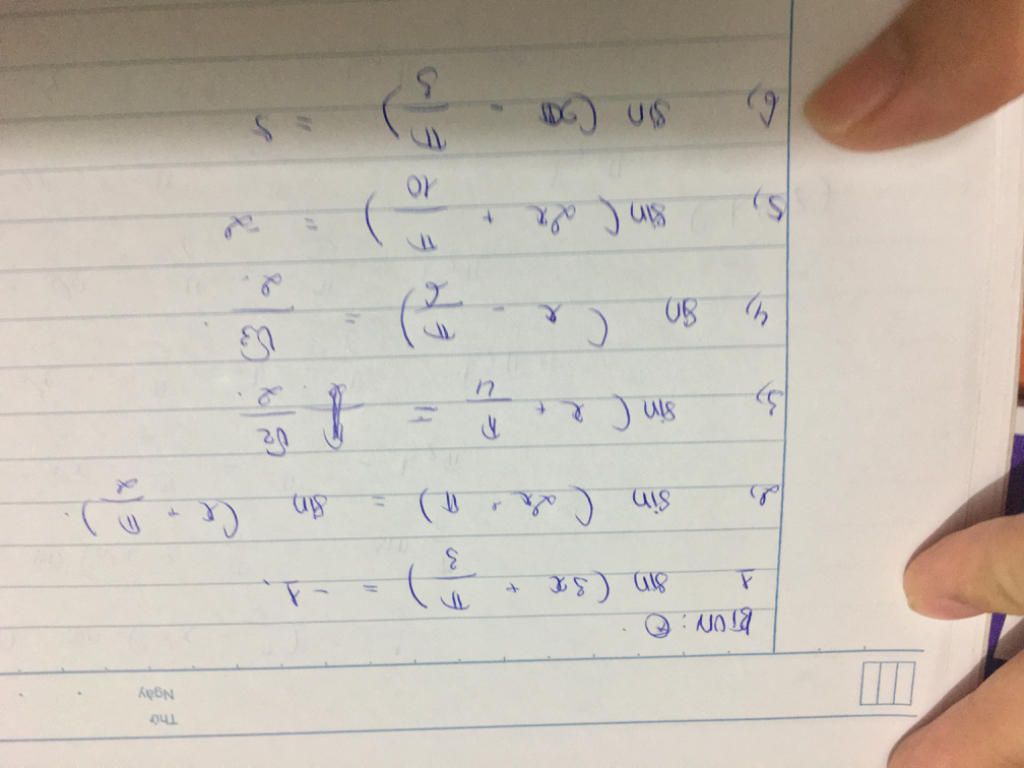 Thứ
Ngày
BTVN:
1 sin (3x + π/3) = -1.
2, sin (2x - π) = sin (x + π/2).
3, sin (x + π/4 = √2/2.
4, sin (x - π/6) = √3/2.
5, sin (2x + π/10) = -2
6, sin ( - π/5) = 5